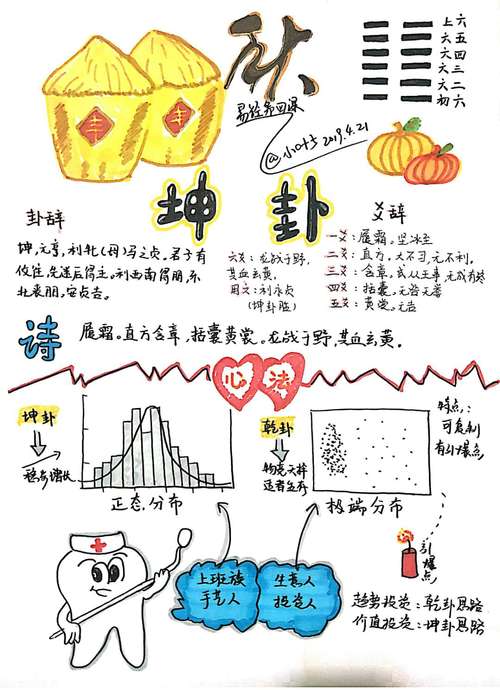 秋
易经第四课
@小叶子 2019.4.21
上六
六五
六四
六三
六二
初六
丰
丰
坤卦
卦辞
坤,元亨,利牝(母)马之贞。君子有
攸往,先迷后得主。利西南得朋,东
北丧朋,安贞吉。
六爻:龙战于野,
其血玄黄。
用六:利永贞
(坤卦脸)
爻辞
一爻:履霜。坚冰至
二爻:直方,大不习,无不利。
三爻:含章,或从王事,无成有终
四爻:括囊,无咎无誉
五爻:黄裳,元吉
诗
履霜。直方含章,括囊黄裳。龙战于野,其血玄黄。
心法
坤卦
稳步增长
正态分布
乾卦
物竞天择
适者生存
极端分布
特点:
可复制
有引爆点
引爆点
上班族
手艺人
生意人
投资人
趋势投资:乾卦思路
价值投资:坤卦思路